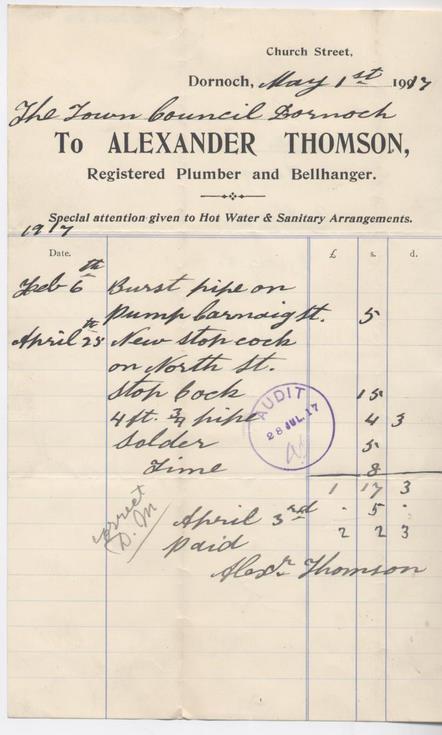 Church Street,
Dornoch, May 1st 1917
The Town Council Dornoch
To ALEXANDER THOMSON,
Registered Plumber and Bellhanger.
Special attention given to Hot Water & Sanitary Arrangements.
1917
Date. £ s. d.
Feb 6th Burst pipe on
Pump Carnaig St. 5
April 25th New stop cock
on North St.
Stop Cock 15
4 ft. 3/4 pipe 4 3
Solder 5
Time 8
1 17 3
April 3rd . 5 .
paid 2 2 3
Alexr Thomson
correct
D. M
AUDIT
28 JUL. 17